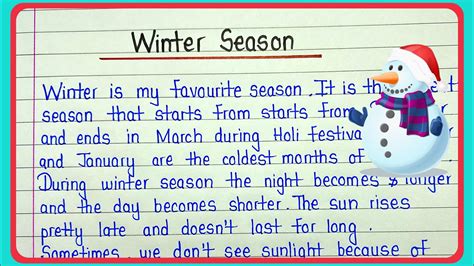 Winter Season
Winter is my favourite season. It is the
season that starts from starts from
and ends in March during Holi festival
and January are the coldest months of
During winter season the night becomes longer
and the day becomes shorter. The sun rises
pretty late and doesn't last for long.
Sometimes, we don't see sunlight because of